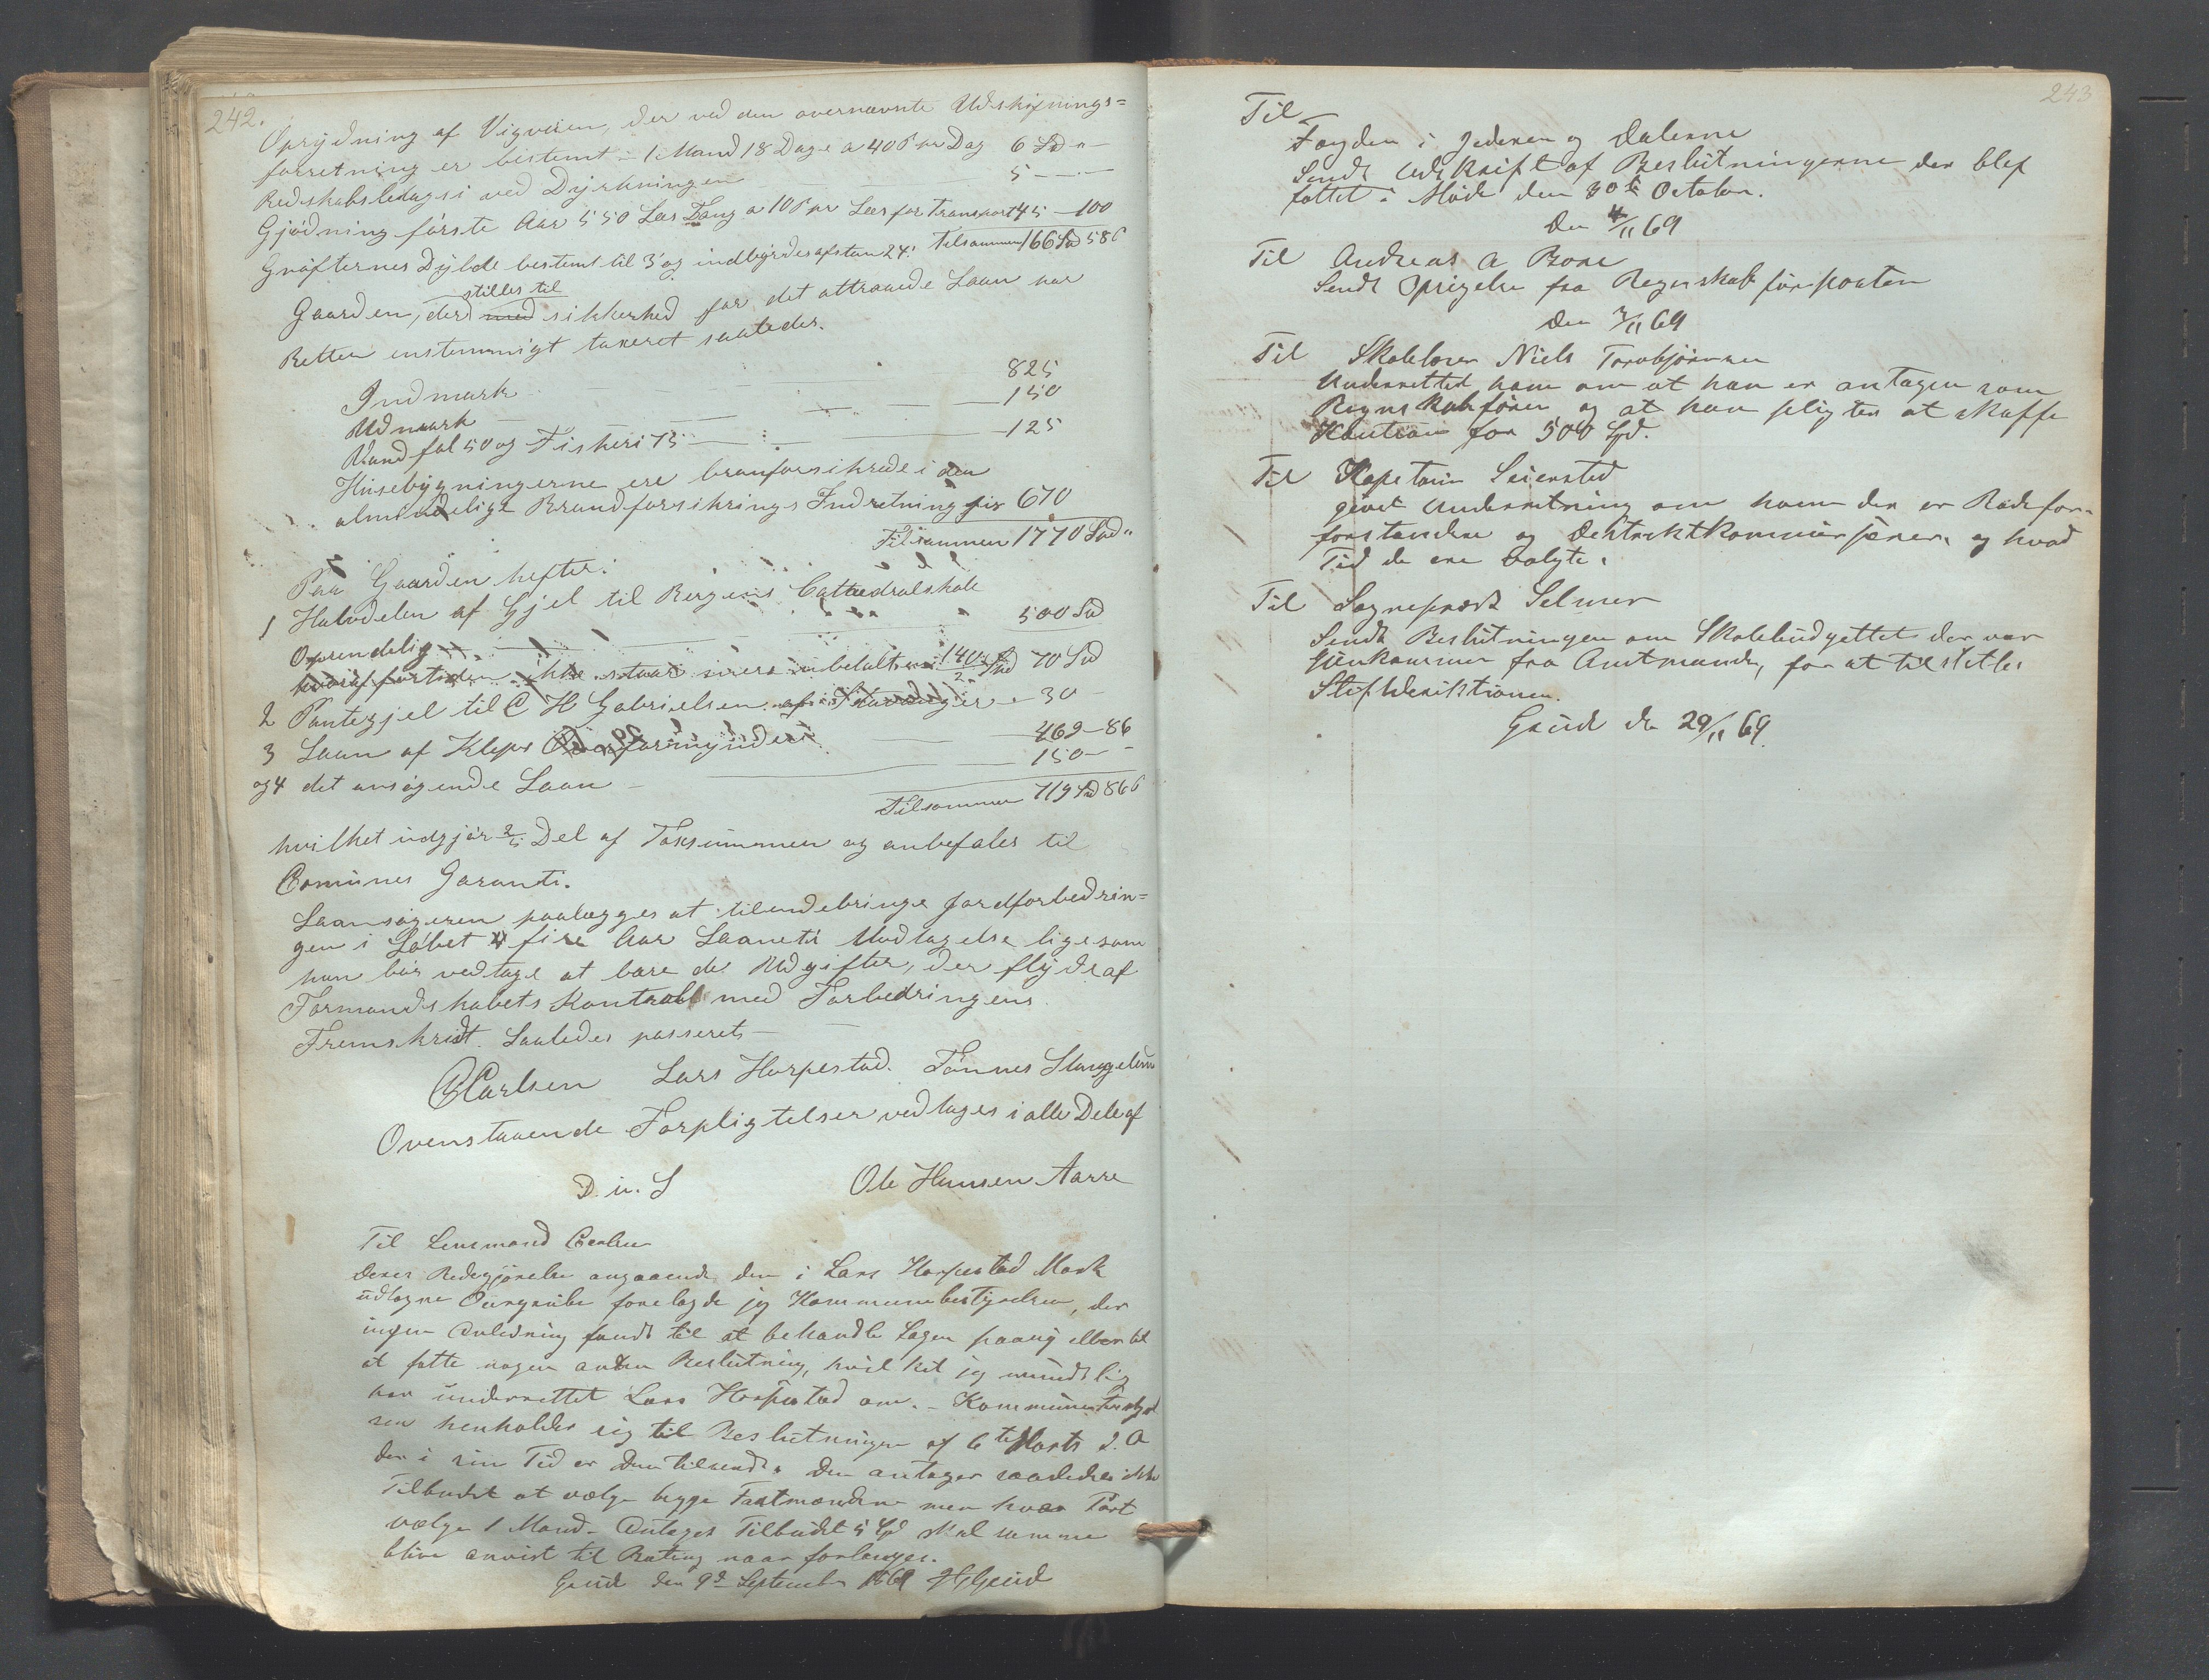 242.
Oprydning af Vigveien, der ved den overnævnte Udskiftnings=
forretning er bestemt – 1 Mand 18 Dage a 40 s pr Dag 6 Spd „ –
Redskabsbelagsi ved Dyrkningen 5 – „ –
Gjödning förste Aar 550 Læs Tang a 10 s pr Læs for Transport 45 – 100
Gröfternes Dybde bestemt til 3' og indbyrdes afstan 24' Tilsammen 166 Spd 58 s
stilles til
Gaarden, der med sikkerhed for det attraaede Laan var
Retten enstemmigt taxeret saaledes.
Indmark 825
Udmark 150
Vandfal 50 og Fiskeri 75 125
Husebygningerne ere branforsikrede i den
almindelige Brandforsikrings Indretning for 670
Tilsammen 1770 Spd „
Paa Gaarden hefter:
1 Halvdelen af Gjel til Bergens Cathedralskole
Oprendelig 500 Spd
hvoraf fortiden ikke staar mere ubetalt en 140 Spd 70 Spd
2 Pantegjel til C H Gabrielsen af Stavanger – 30 –
3 Laan af Kleps Overformynderi 469 – 86
og 4 det ansøgende Laan – 150 – –
Tilsammen 719 Spd 86 s
hvilket udgjör 2/5 Del af Taksummen og anbefales til
Comunes Garanti.
Laansögeren paalægges at tilendebringe Jordforbedrin=
gen i Löbet 4 fire Aar Laanets Modtagelse ligesom
han bör vedtage at bære de Udgifter, der flyde af
Formandskabets Kontroll med Forbedringens
Fremskridt. Saaledes passeret –
Carlsen Lars Horpestad. Tönnes Stangeland
Ovenstaaende Forpligtelser vedtages i alle Dele af
D. u. S Ole Hansen Aarre
Til Lensmand Carlsen
Deres Redegjörelse angaaende den i Lars Horpestad Mark
udtagne Öurgrube forelagde jeg Kommunebestyrelsen, der
ingen Anledning fandt til at behandle Sagen paany eller til
at fatte nogen anden Beslutning, hvilket jeg mundtlig
har underrettet Lars Horpestad om. – Kommunebestyrel
sen henholder sig til Beslutningen af 6te Marts d. A
der i sin Tid er Dem tilsendt. Den antager saaledes ikke
Tilbudet at vælge begge Taxtmændene men hver Part
vælge 1 Mand – Antages Tilbudet 5 Spd skal samme
blive anvist til Betaling naar forlanges.
Grude den 9de September 1869 HGrude
243
Til
Fogden i Jederen og Dalerne
Sendt Udskrift af Beslutningerne der blef
fattet i Möde den 30te October.
Den 4/11 69
Til Andreas A Bore
Sendt Opsigelse fra Regnskabsförposten
Den 3/11 69
Til Skolelærer Niels Torubjörnsen
Underrettet ham om at han er antagen som
Regnskabsförer og at han pligter at skaffe
Kaution for 500 Spd.
Til Kapetain Seiersted
givet Underretning om hvem der er Rodefor=
forstandere og Dehtriktkommissærer og hvad
Tid de ere valgte.
Til Sogneprest Selmer
Sendt Beslutningen om Skolebudgettet der var
gjenkommen fra Amtmanden, for at tilstilles
Stiftsderiktionen.
Grude den 29/11 69.